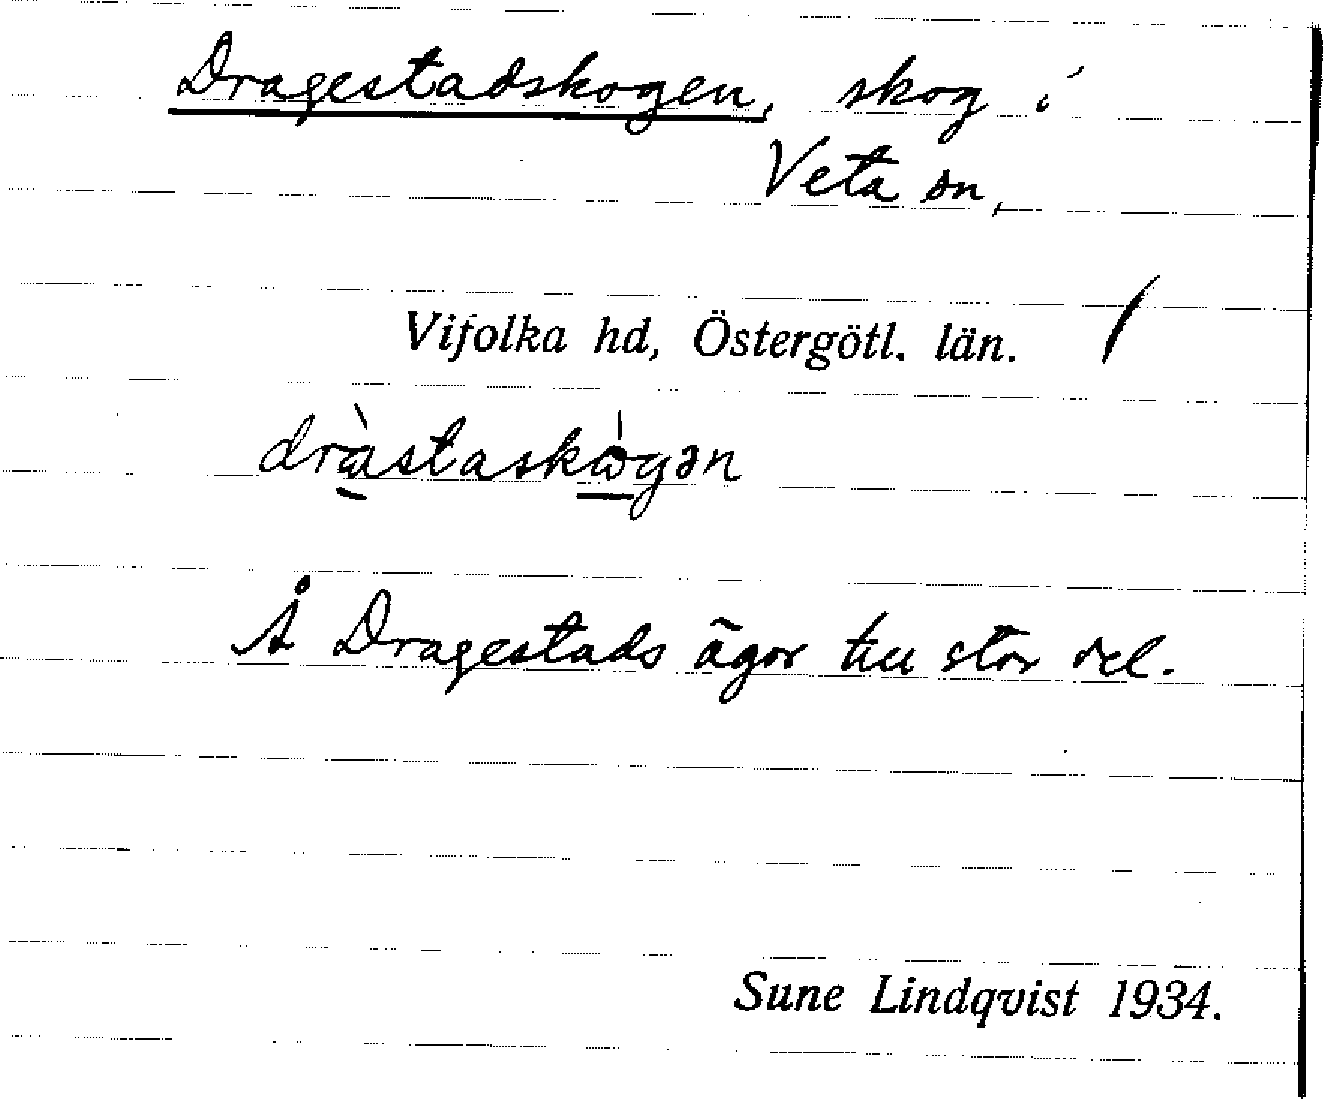 Dragestadskogen, skog i
Veta sn,
Vifolka hd, Östergötl. län.
dràstaskògən
Å Dragestads ägor till stor del.
Sune Lindqvist 1934.